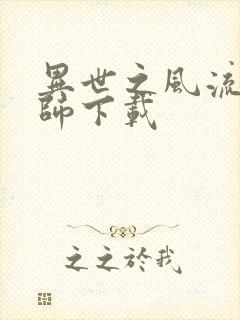 異世之風流
師下載
之之於我